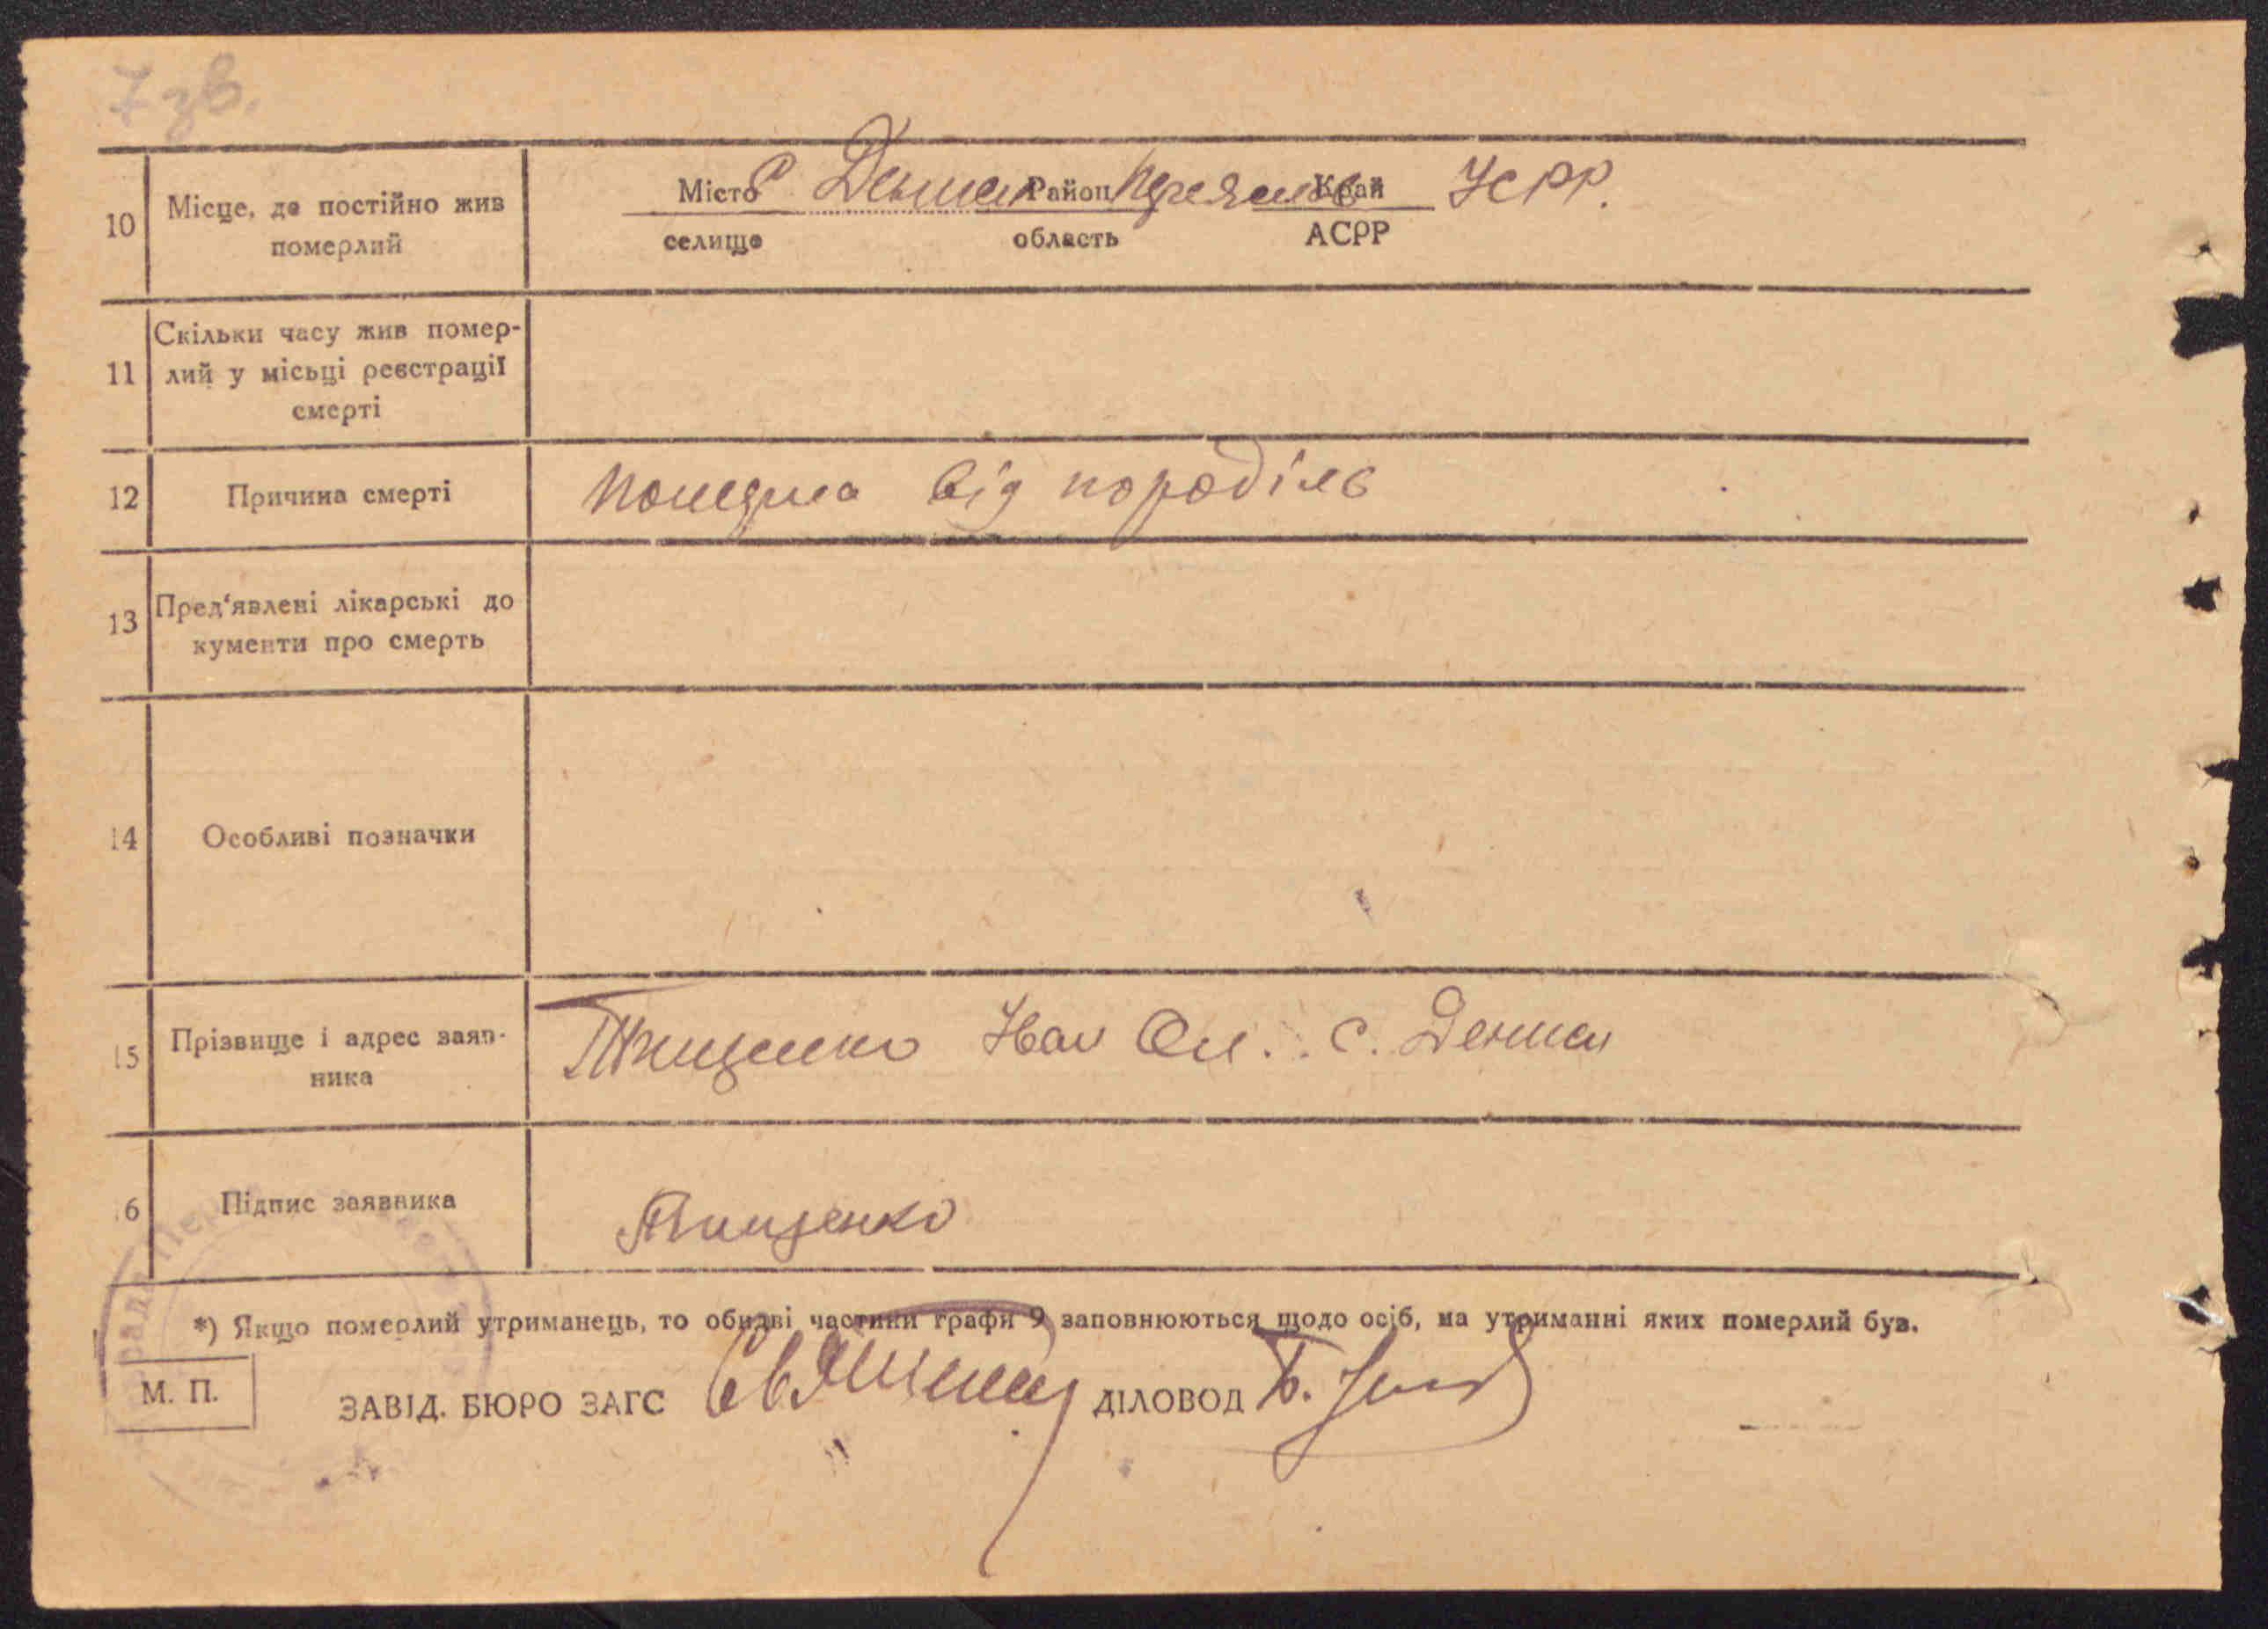 7 зв.
10 Місце, де постійно жив померлий
Місто с Дениси Район Переяслів Край УСРР.
селище область АСРР
11 Скільки часу жив помер-
лий у місьці реєстрації
смерті
12 Причина смерті померла від породіль
13 Пред'явлені лікарські до
кументи про смерть
14 Особливі позначки
15 Прізвище і адрес заяв-
ника
Тищенко Іван Ол. с. Дениси
16 Підпис заявника Тищенко
*) Якщо померлий утриманець, то обидві частини графи 9 заповнюються щодо осіб, на утриманні яких померлий був.
М. П. ЗАВІД. БЮРО ЗАГС ДІЛОВОД